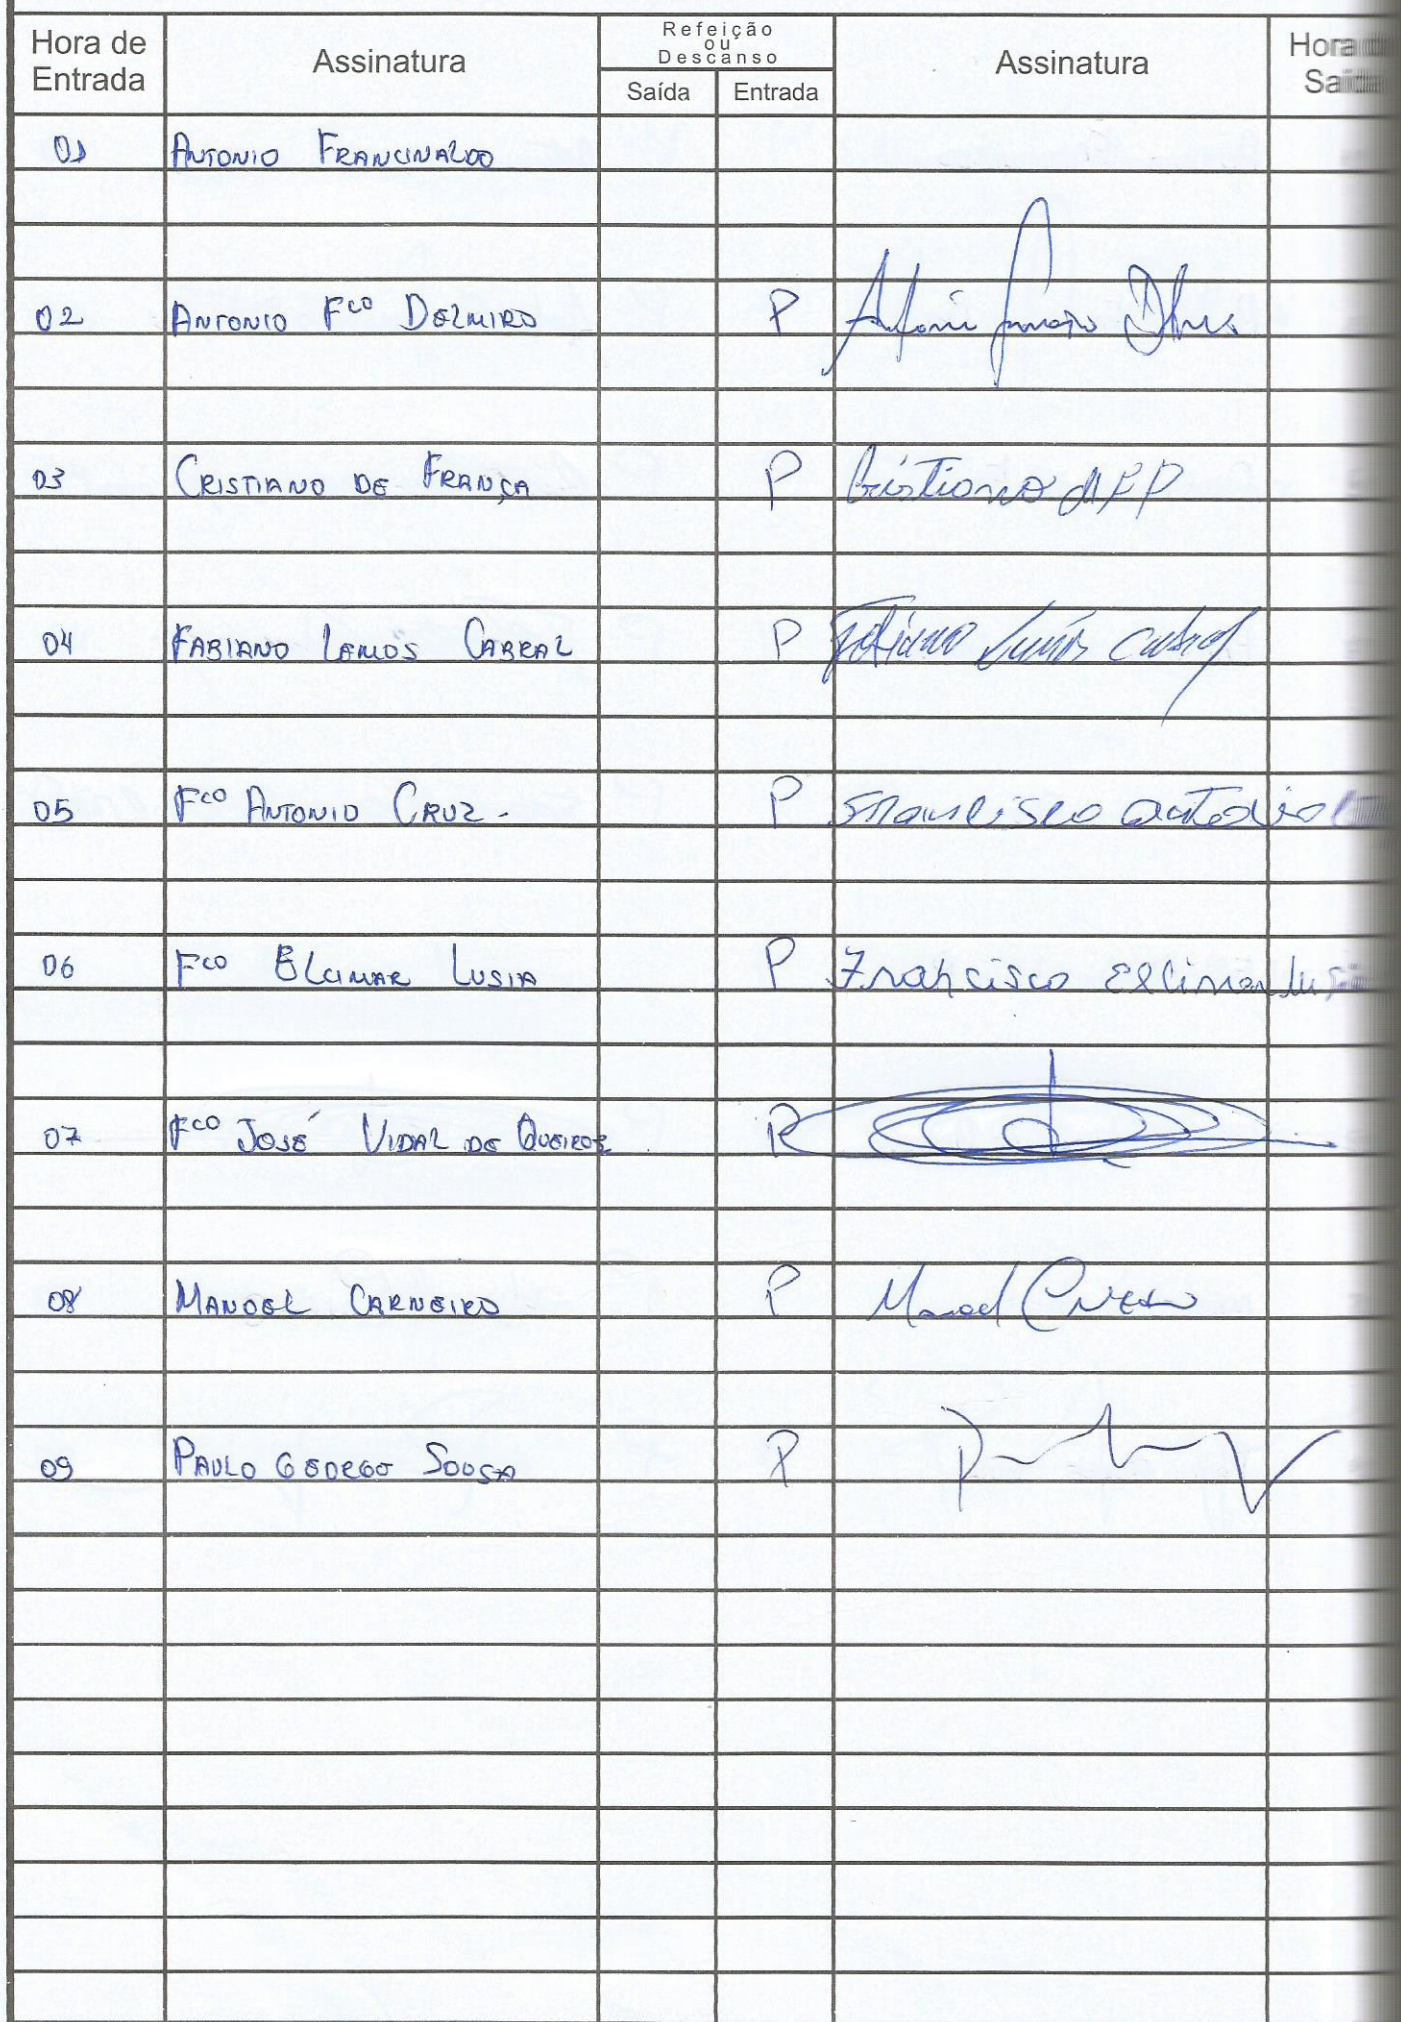 Hora de Entrada Assinatura Refeição ou Descanso Saída Entrada Assinatura Hora Saída
01 ANTONIO FRANCINALDO
02 ANTONIO Fco DELMIRO P
03 CRISTIANO DE FRANÇA P Cristiano
04 FABIANO LEMOS CABRAL P Fabiano Lemos Cabral
05 Fco ANTONIO CRUZ - P Francisco Antonio
06 Fco ELCIMAR LUSIA P Francisco Elcimar
07 Fco JOSÉ VIDAL DE QUEIROZ P
08 MANOEL CARNEIRO P Manoel
09 PAULO GEORGE SOUSA P